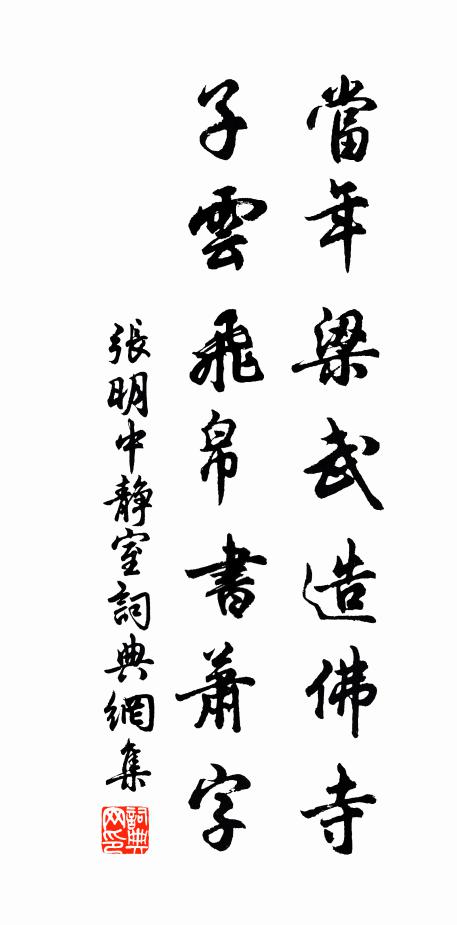 當年梁武造佛寺
子雲飛帛書蕭字
張明中靜室詞典網集
詞典網印